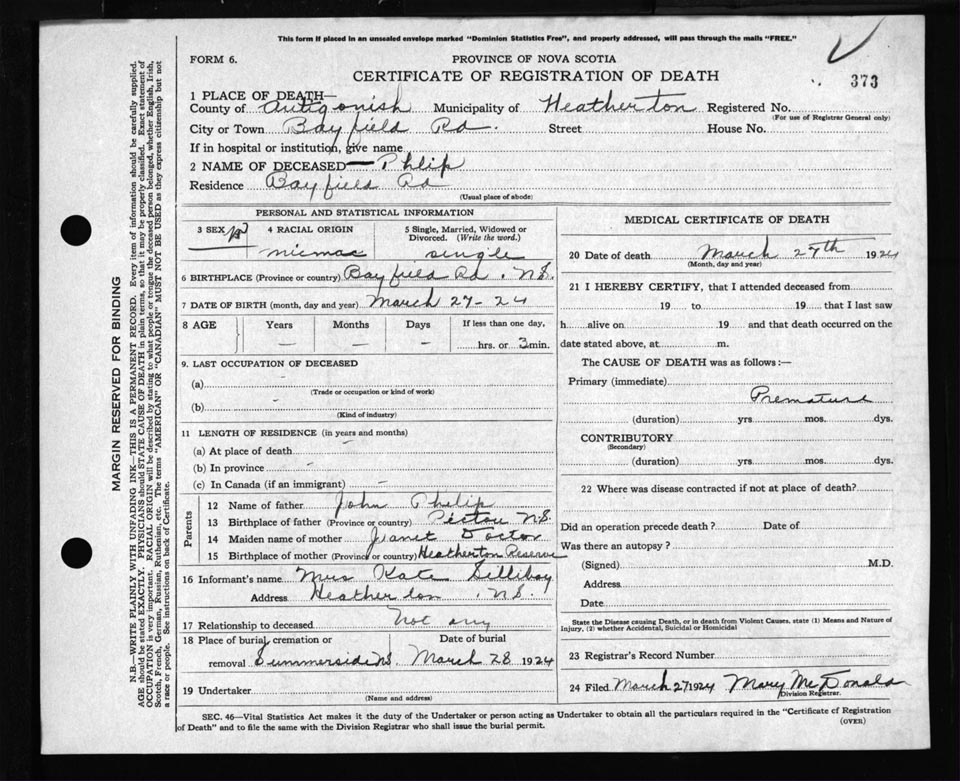 This form if placed in an unsealed envelope marked "Dominion Statistics Free", and properly addressed, will pass through the mails "FREE."
FORM 6.
PROVINCE OF NOVA SCOTIA
CERTIFICATE OF REGISTRATION OF DEATH
373
1 PLACE OF DEATH—
County of Antigonish Municipality of Heatherton Registered No.
(For use of Registrar General only)
City or Town Bayfield Rd. Street House No.
If in hospital or institution, give name
2 NAME OF DECEASED— Philip
Residence Bayfield Rd
(Usual place of abode)
PERSONAL AND STATISTICAL INFORMATION
3 SEX 4 RACIAL ORIGIN 5 Single, Married, Widowed or Divorced. (Write the word.)
micmac single
6 BIRTHPLACE (Province or country) Bayfield Rd. N.S.
7 DATE OF BIRTH (month, day and year) March 27-24
8 AGE Years Months Days If less than one day,
— — — hrs. or 3 min.
9. LAST OCCUPATION OF DECEASED
(a)
(Trade or occupation or kind of work)
(b)
(Kind of industry)
11 LENGTH OF RESIDENCE (in years and months)
(a) At place of death
(b) In province
(c) In Canada (if an immigrant)
Parents
12 Name of father John Philip
13 Birthplace of father (Province or country) Pictou N.S.
14 Maiden name of mother Janet Doctor
15 Birthplace of mother (Province or country) Heatherton Reserve
16 Informant's name Mrs Kate Silliboy
Address Heatherton N.S.
17 Relationship to deceased Not any
18 Place of burial, cremation or removal Summerside N.S. Date of burial March 28 1924
19 Undertaker
(Name and address)
MEDICAL CERTIFICATE OF DEATH
20 Date of death March 27th 1924
(Month, day and year)
21 I HEREBY CERTIFY, that I attended deceased from
19 to 19 that I last saw
h alive on 19 and that death occurred on the
date stated above, at m.
The CAUSE OF DEATH was as follows:—
Primary (immediate)
Premature
(duration) yrs. mos. dys.
CONTRIBUTORY
(Secondary)
(duration) yrs. mos. dys.
22 Where was disease contracted if not at place of death?
Did an operation precede death? Date of
Was there an autopsy?
(Signed) M.D.
Address
Date
State the Disease causing Death, or in death from Violent Causes, state (1) Means and Nature of
Injury, (2) whether Accidental, Suicidal or Homicidal
23 Registrar's Record Number
24 Filed March 27 1924 Mary McDonald
Division Registrar.
SEC. 46—Vital Statistics Act makes it the duty of the Undertaker or person acting as Undertaker to obtain all the particulars required in the "Certificate of Registration
of Death" and to file the same with the Division Registrar who shall issue the burial permit.
(OVER)
MARGIN RESERVED FOR BINDING
N.B.—WRITE PLAINLY WITH UNFADING INK—THIS IS A PERMANENT RECORD. Every item of information should be carefully supplied.
AGE should be stated EXACTLY. PHYSICIANS should STATE CAUSE OF DEATH in plain terms, so that it may be properly classified. Exact statement of
OCCUPATION is very important. RACIAL ORIGIN will be described by stating to what people or tongue the deceased person belonged, whether English, Irish,
Scotch, French, German, Russian, Ruthenian, etc. The terms "AMERICAN" OR "CANADIAN" MUST NOT BE USED as they express citizenship but not
a race or people. See instructions on back of Certificate.